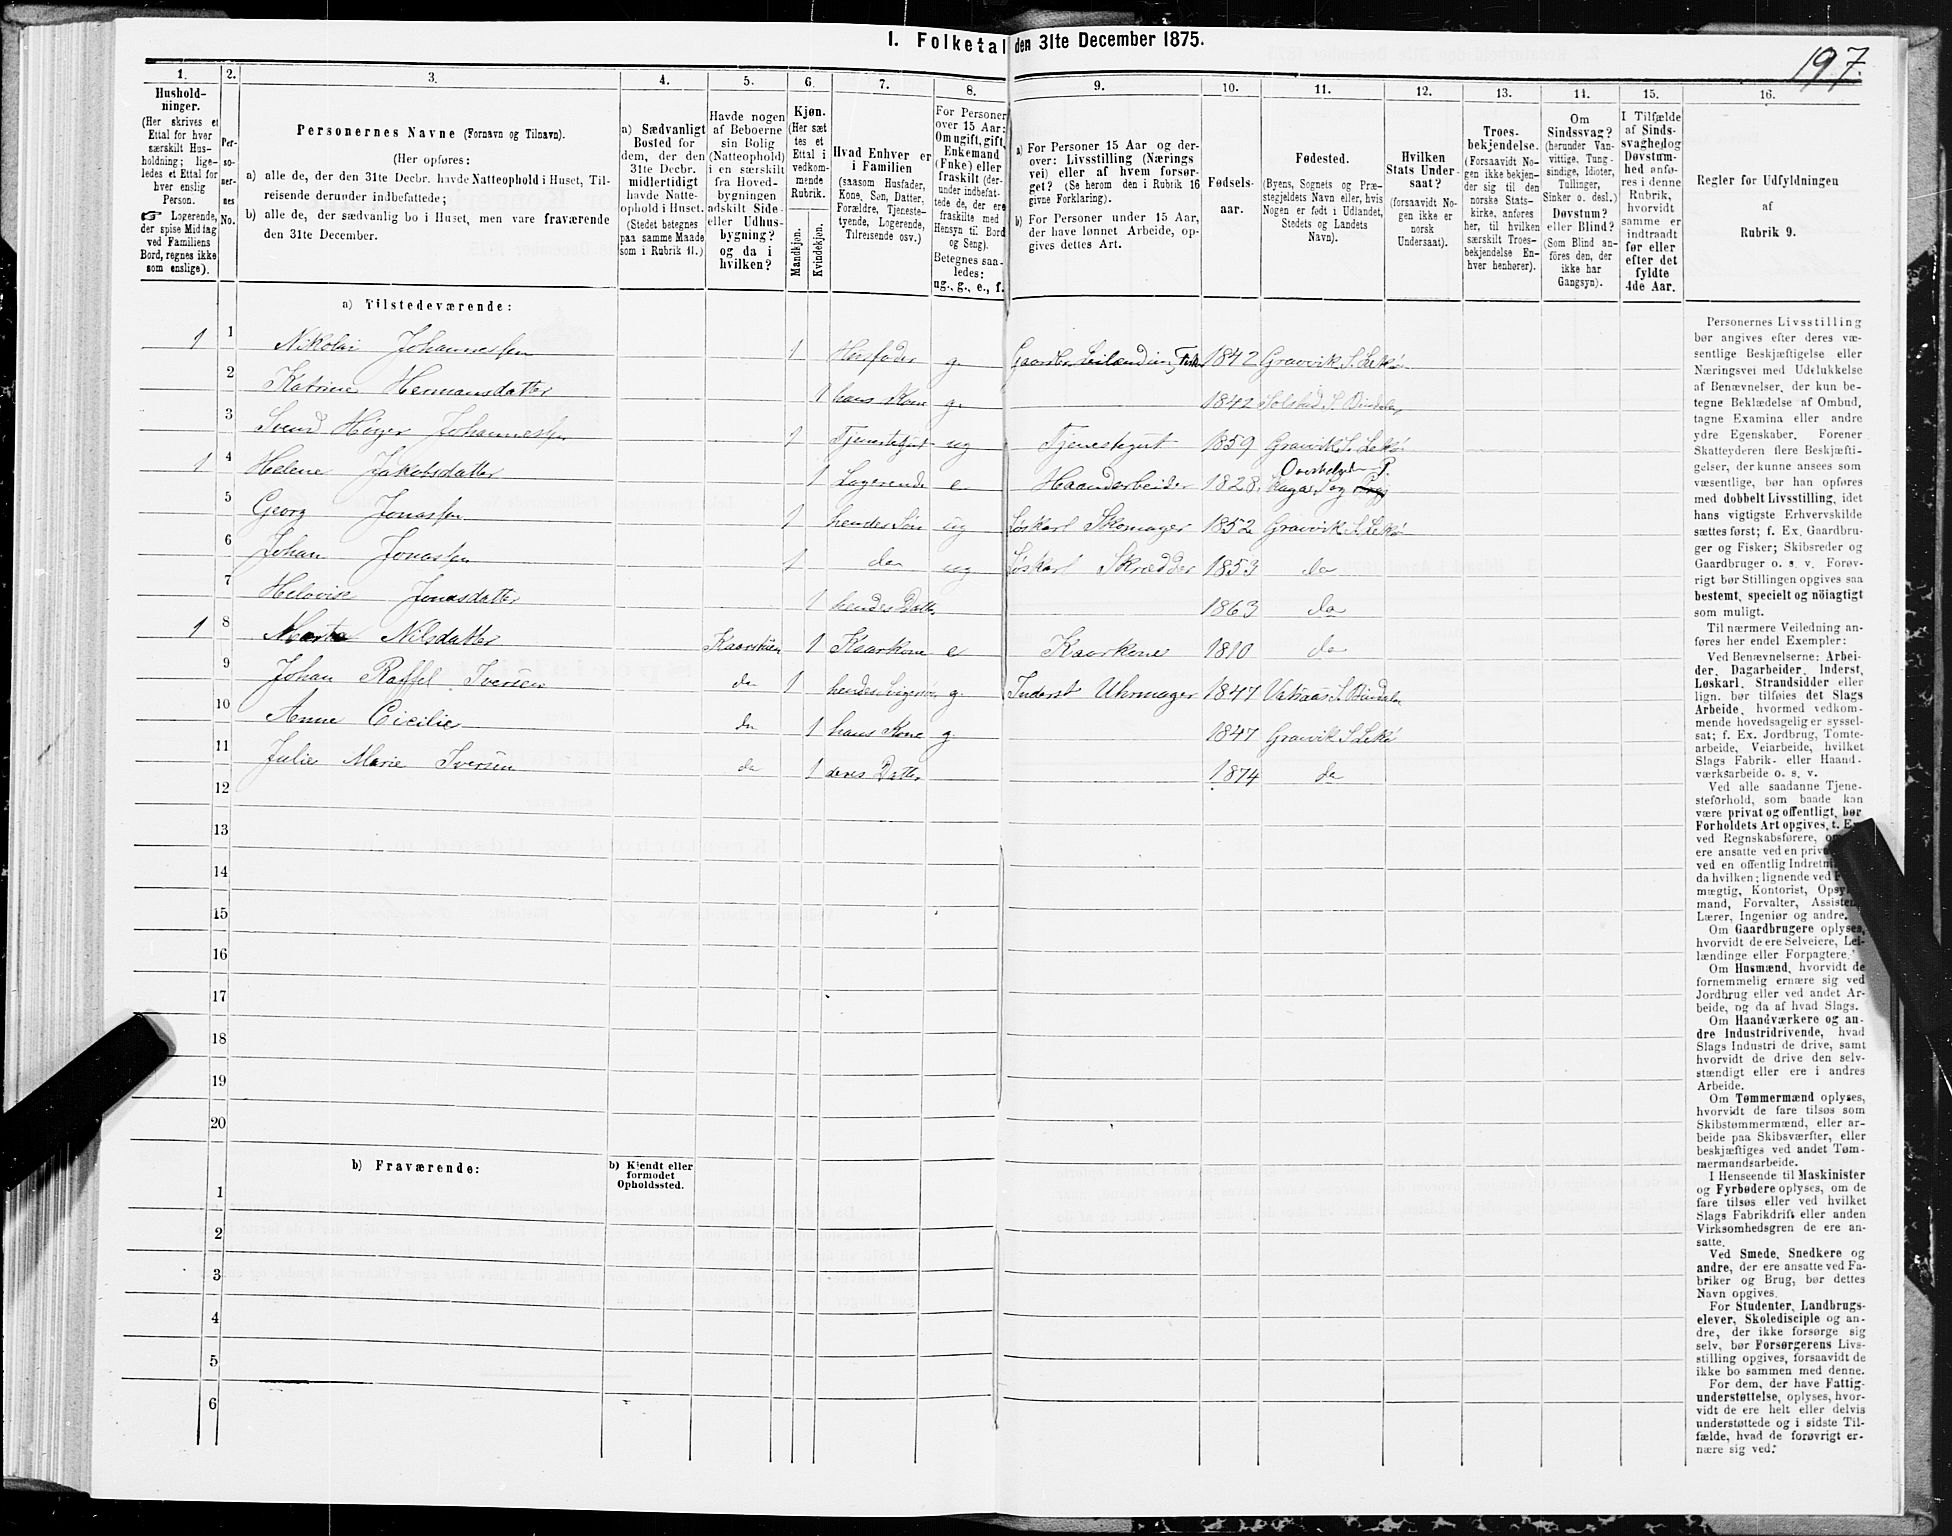 1. Folketal den 31te December 1875.
197.
1.
Hushold-
ninger.
(Her skrives et
Ettal for hver
særskilt Hus-
holdning; lige-
ledes et Ettal for
hver enslig
Person.
☞ Logerende,
der spise Middag
ved Familiens
Bord, regnes ikke
som enslige).
2.
Per-
so-
ner-
nes
No.
3.
Personernes Navne (Fornavn og Tilnavn).
(Her opføres:
a) alle de, der den 31te Decbr. havde Natteophold i Huset, Til-
reisende derunder indbefattede;
b) alle de, der sædvanlig bo i Huset, men vare fraværende
den 31te December.
4.
a) Sædvanligt
Bosted for
dem, der den
31te Decbr.
midlertidigt
havde Natte-
ophold i Huset.
(Stedet betegnes
paa samme Maade
som i Rubrik 11.)
5.
Havde nogen
af Beboerne
sin Bolig
(Natteophold)
i en særskilt
fra Hoved-
bygningen
adskilt Side-
eller Udhus-
bygning?
og da i
hvilken?
6.
Kjøn.
(Her sæt
tes et
Ettal i
vedkom-
mende
Rubrik.
Mandkjøn.
Kvindekjøn.
7.
Hvad Enhver er
i Familien
(saasom Husfader,
Kone, Søn, Datter,
Forældre, Tjeneste-
tyende, Logerende,
Tilreisende osv.)
8.
For Personer
over 15 Aar:
Om ugift, gift,
Enkemand
(Enke) eller
fraskilt (der-
under indbefat-
tede de, der ere
fraskilte med
Hensyn til Bord
og Seng).
Betegnes saa-
ledes:
ug., g., e., f.
9.
a) For Personer 15 Aar og der-
over: Livsstilling (Nærings
vei) eller af hvem forsør-
get? (Se herom den i Rubrik 16
givne Forklaring).
b) For Personer under 15 Aar,
der have lønnet Arbeide, op-
gives dettes Art.
10.
Fødsels-
aar.
11.
Fødested.
(Byens, Sognets og Præ-
stegjeldets Navn eller, hvis
Nogen er født i Udlandet,
Stedets og Landets
Navn).
12.
Hvilken
Stats Under-
saat?
(forsaavidt No-
gen ikke er
norsk
Undersaat).
13.
Troes-
bekjendelse.
(Forsaavidt No-
gen ikke bekjen-
der sig til den
norske Stats-
kirke, anføres
her, til hvilken
særskilt Troes-
bekjendelse En-
hver henhører).
14.
Om
Sindssvag?
(herunder Van-
vittige, Tung-
sindige, Idioter,
Tullinger,
Sinker o. desl.)
Døvstum?
eller Blind?
(Som Blind an-
føres den, der
ikke har
Gangsyn).
15.
I Tilfælde
af Sinds-
svaghed og
Døvstum-
hed anfø-
res i denne
Rubrik,
hvorvidt
samme er
indtraadt
før eller
efter det
fyldte
4de Aar.
16.
Regler for Udfyldningen
af
Rubrik 9.
a) Tilstedeværende:
1 1 Nikolai Johannessen 1 Husfader g. Gaardbr. Leilænding, Fisker 1842 Gravvik S. Lekø
2 Katrine Hermansdatter 1 hans Kone g. 1842 Solstad S. Bindalen
3 Svend Høyer Johannessen 1 Tjenestegut ug Tjenestegut 1859 Gravvik S. Lekø
1 4 Helene Jakobsdatter 1 Logerende e Haandarbeider 1828 Skaga Sog Overhalden P.
5 Georg Jonassen 1 hendes Søn ug Løskarl Skomager 1852 Gravvik S. Lekø
6 Johan Jonassen 1 do ug Løskarl Skrædder 1853 do
7 Helovise Jonasdatter 1 hendes Datter 1863 do
1 8 Marta Nilsdatter Kaarstuen 1 Kaarkone e Kaarkone 1810 do
9 Johan Raffel Iversen do 1 hendes Svigersøn g. Inderst Uhrmager 1847 Vatsaas S. Bindalen
10 Anne Cicilie do 1 hans Kone g. 1847 Gravvik S. Lekø
11 Julie Marie Iversen do 1 deres Datter 1874 do
12
13
14
15
16
17
18
19
20
b) Fraværende:
b) Kjendt eller
formodet
Opholdssted.
1
2
3
4
5
6
Personernes Livsstilling
bør angives efter deres væ-
sentlige Beskjæftigelse eller
Næringsvei med Udelukkelse
af Benævnelser, der kun be-
tegne Beklædelse af Ombud,
tagne Examina eller andre
ydre Egenskaber. Forener
Skatteyderen flere Beskjæfti-
gelser, der kunne ansees som
væsentlige, bør han opføres
med dobbelt Livsstilling, idet
hans vigtigste Erhvervskilde
sættes først; f. Ex. Gaardbru-
ger og Fisker; Skibsreder og
Gaardbruger o. s. v. Forøv-
rigt bør Stillingen opgives saa
bestemt, specielt og nöiagtigt
som muligt.
Til nærmere Veiledning an-
føres her endel Exempler:
Ved Benævnelserne: Arbei-
der, Dagarbeider, Inderst,
Løskarl, Strandsidder eller
lign. bør tilføies det Slags
Arbeide, hvormed vedkom-
mende hovedsagelig er syssel-
sat; f. Ex. Jordbrug, Tomte-
arbeide, Veiarbeide, hvilket
Slags Fabrik- eller Haand-
værksarbeide o. s. v.
Ved alle saadanne Tjene-
steforhold, som baade kan
være privat og offentligt, bør
Forholdets Art opgives, t. Ex.
ved Regnskabsførere, om
ere ansatte ved en priv
ved en offentlig Indretn
da hvilken; lignende ved
mægtig, Kontorist, Opsy
mand, Forvalter, Assistent,
Lærer, Ingeniør og andre.
Om Gaardbrugere oplyses,
hvorvidt de ere Selveiere, Lei-
lændinge eller Forpagtere.
Om Husmænd, hvorvidt de
fornemmelig ernære sig ved
Jordbrug eller ved andet Ar-
beide, og da af hvad Slags.
Om Haandværkere og an-
dre Industridrivende, hvad
Slags Industri de drive, samt
hvorvidt de drive den selv-
stændigt eller ere i andres
Arbeide.
Om Tømmermænd oplyses,
hvorvidt de fare tilsøs som
Skibstømmermænd, eller ar-
beide paa Skibsværfter, eller
beskjæftiges ved andet Tøm-
mermandsarbeide.
I Henseende til Maskinister
og Fyrbødere oplyses, om de
fare tilsøs eller ved hvilket
Slags Fabrikdrift eller anden
Virksomhedsgren de ere an-
satte.
Ved Smede, Snedkere og
andre, der ere ansatte ved Fa-
briker og Brug, bør dettes
Navn opgives.
For Studenter, Landbrugs-
elever, Skoledisciple og an-
dre, der ikke forsørge sig
selv, bør Forsørgerens Livs-
stilling opgives, forsaavidt de
ikke bo sammen med denne.
For dem, der have Fattig-
understøttelse, oplyses, hvor-
vidt de ere helt eller delvis
understøttede og i sidste Til-
fælde, hvad de forøvrigt er-
nære sig ved.